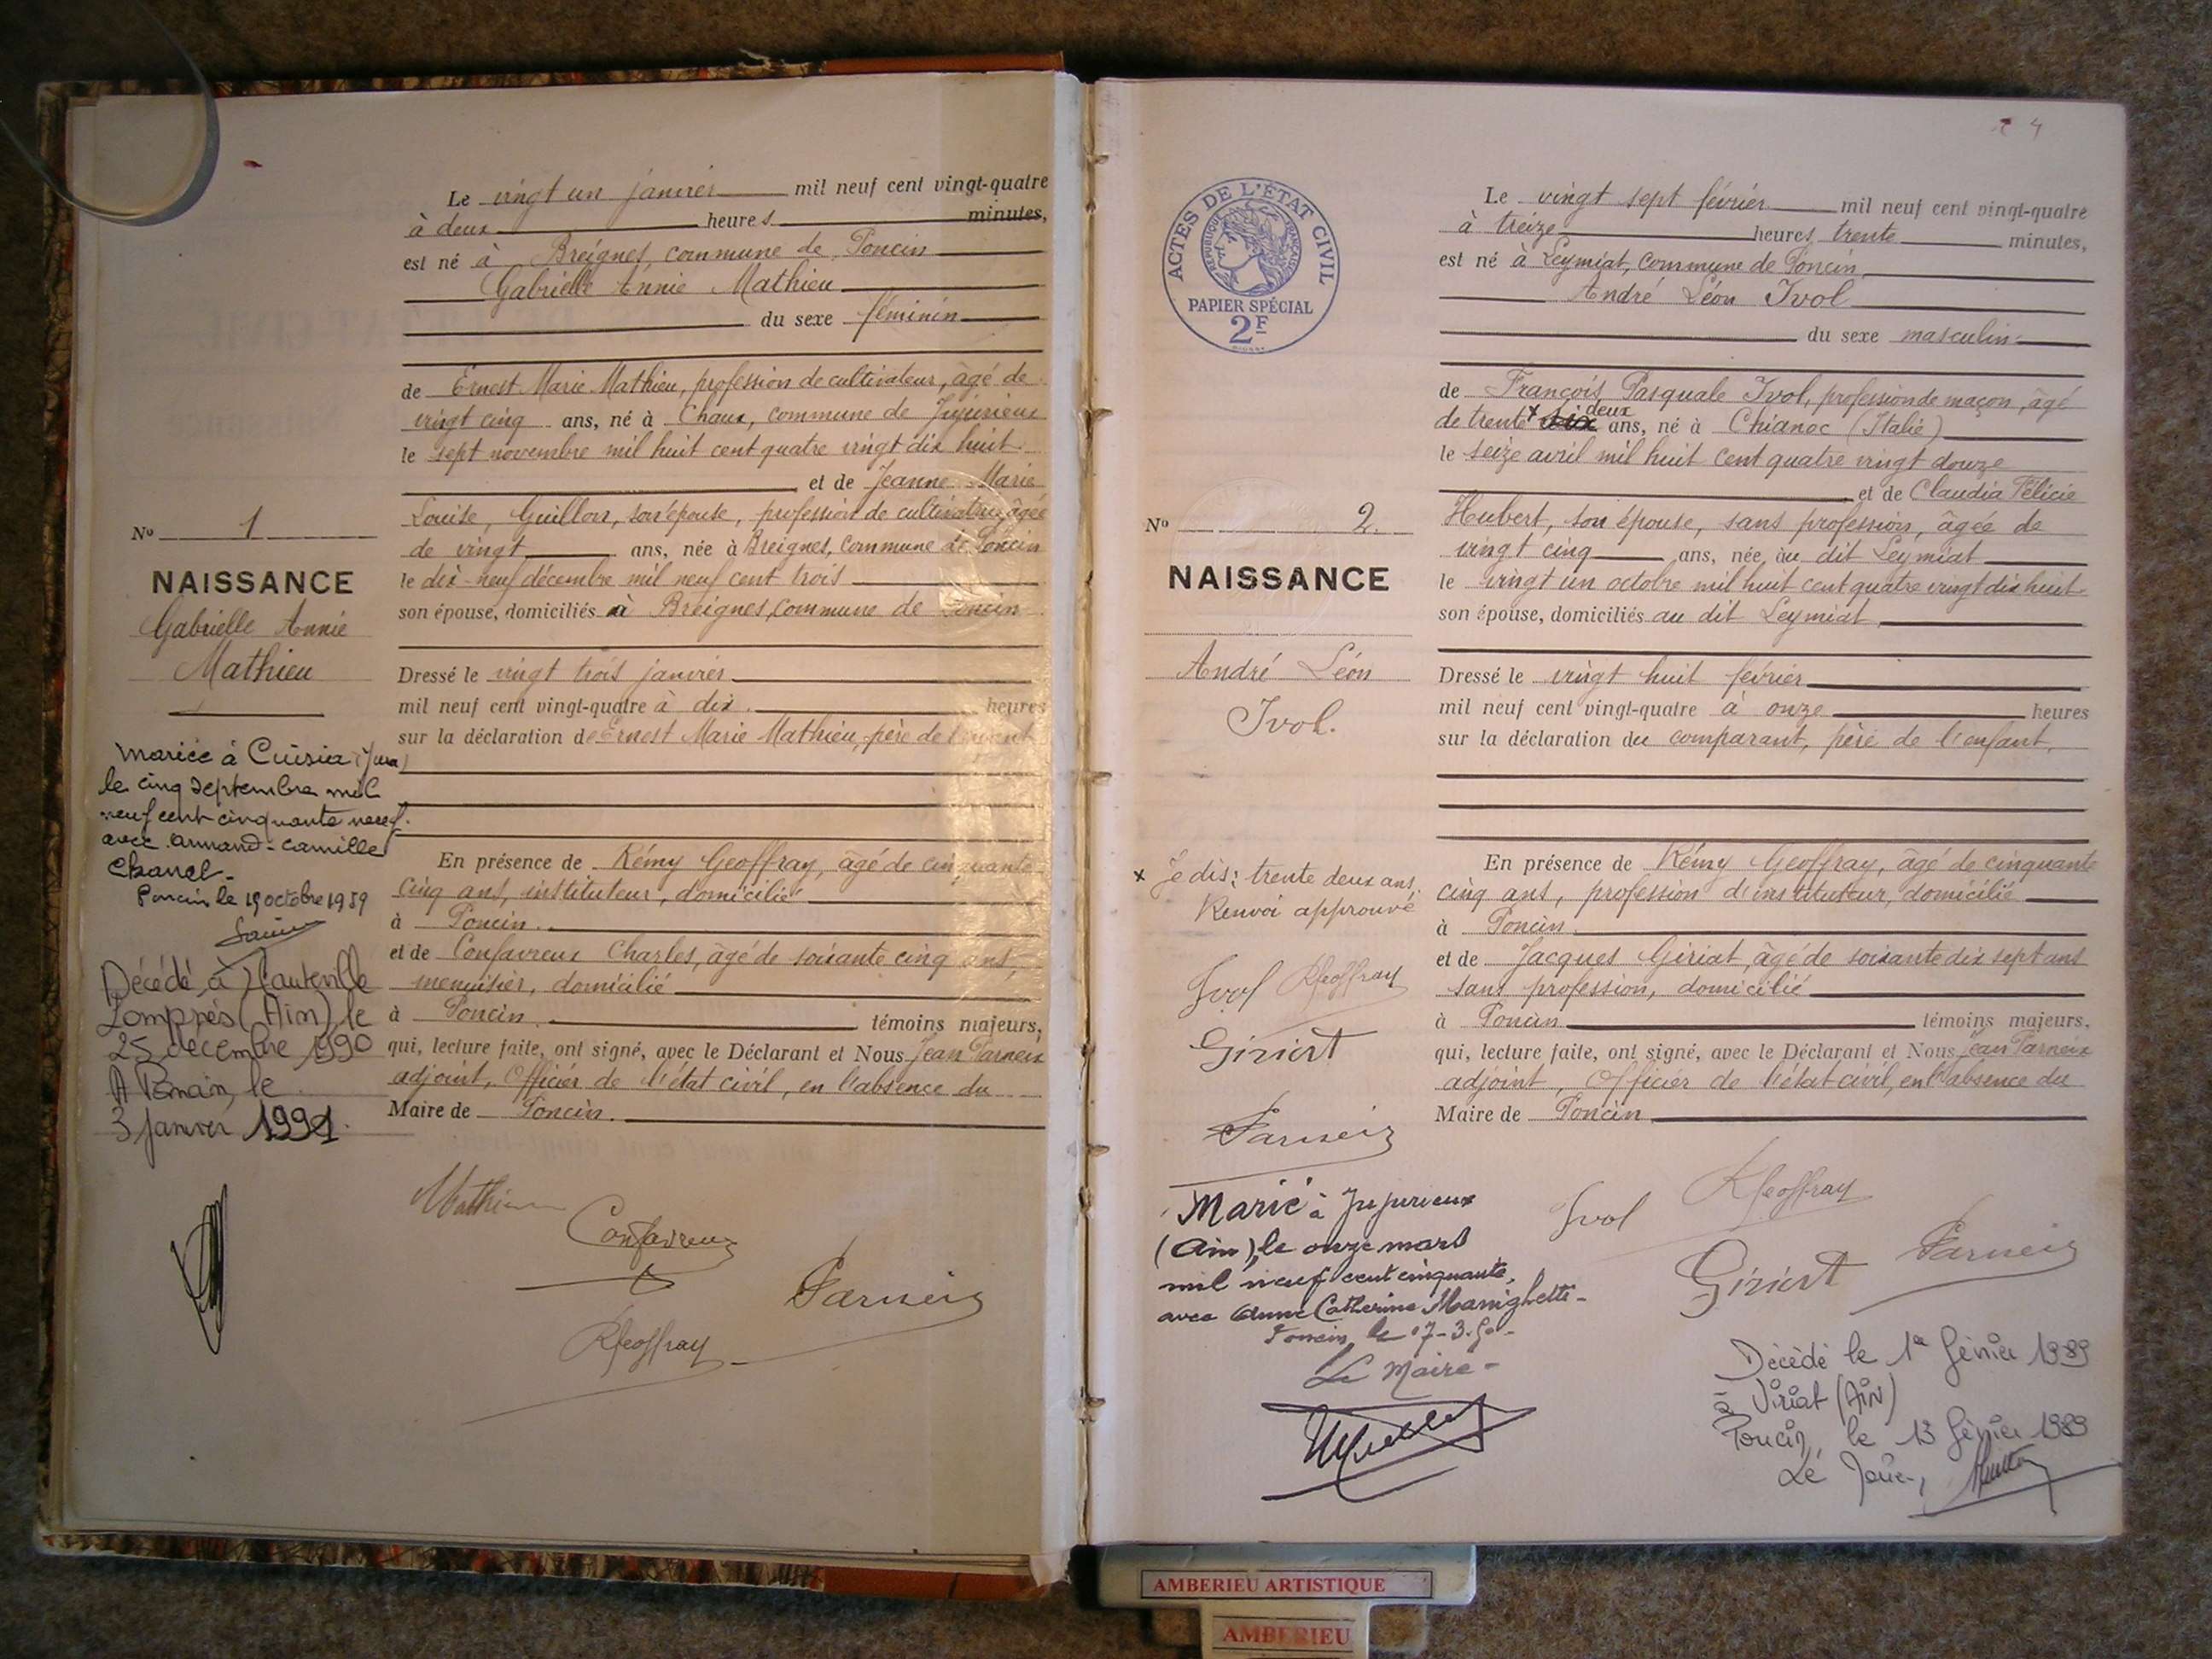 Le vingt un janvier mil neuf cent vingt-quatre
à deux heures minutes,
est né à Breignes, commune de Poncin
Gabrielle Annie Mathieu
du sexe féminin
de Ernest Marie Mathieu, profession de cultivateur, âgé de
vingt cinq ans, né à Chaux, commune de Jujurieux
le sept novembre mil huit cent quatre vingt dix huit
et de Jeanne Marie
Louise, Guillon, son épouse, profession de cultivatrice, âgée
de vingt ans, née à Breignes, commune de Poncin
le dix-neuf décembre mil neuf cent trois
son épouse, domiciliés à Breignes, commune de Poncin
Dressé le vingt trois janvier
mil neuf cent vingt-quatre à dix heures
sur la déclaration de Ernest Marie Mathieu, père de l'enfant
En présence de Rémy Geoffray, âgé de cinquante
cinq ans, instituteur, domicilié
à Poncin.
et de Confavreux Charles, âgé de soixante cinq ans,
menuisier, domicilié
à Poncin témoins majeurs,
qui, lecture faite, ont signé, avec le Déclarant et Nous Jean Parneix
adjoint, Officier de l'état civil, en l'absence du
Maire de Poncin.
Mathieu
Confavreux
Parneix
RGeoffray
No 1
NAISSANCE
Gabrielle Annie
Mathieu
Mariée à Cuisia (Jura)
le cinq septembre mil
neuf cent cinquante neuf
avec Armand-Camille
Chanel-
Poncin le 19 octobre 1959
Décédé à Hauteville
Lompnès (Ain) le
25 décembre 1990
A Poncin, le
3 Janvier 1991.
4
ACTES DE L'ÉTAT CIVIL
RÉPUBLIQUE FRANÇAISE
PAPIER SPÉCIAL
2F
No 2.
NAISSANCE
André Léon
Ivol.
x Je dis: trente deux ans.
Renvoi approuvé
Ivol RGeoffray
Giriat
Parneix
Marié à Jujurieux
(Ain), le onze mars
mil neuf cent cinquante,
avec Anne Catherine Manighetti-
Poncin, le 17-3-50-
Le Maire-
Le vingt sept février mil neuf cent vingt-quatre
à treize heures trente minutes,
est né à Leymiat, commune de Poncin
André Léon Ivol
du sexe masculin
de François Pasquale Ivol, profession de maçon, âgé
de trente x deux ans, né à Chianoc (Italie)
le seize avril mil huit cent quatre vingt douze
et de Claudia Félicie
Hubert, son épouse, sans profession, âgée de
vingt cinq ans, née au dit Leymiat
le vingt un octobre mil huit cent quatre vingt dix huit
son épouse, domiciliés au dit Leymiat
Dressé le vingt huit février
mil neuf cent vingt-quatre à onze heures
sur la déclaration du comparant, père de l'enfant,
En présence de Rémy Geoffray, âgé de cinquante
cinq ans, profession d'instituteur, domicilié
à Poncin
et de Jacques Giriat, âgé de soixante dix sept ans
sans profession, domicilié
à Poncin témoins majeurs,
qui, lecture faite, ont signé, avec le Déclarant et Nous Jean Parneix
adjoint, Officier de l'état civil, en l'absence du
Maire de Poncin
Ivol
RGeoffray
Giriat
Parneix
Décédé le 1er février 1989
à Viriat (AIN)
Poncin, le 13 février 1989
Le Maire,
AMBERIEU ARTISTIQUE
AMBERIEU